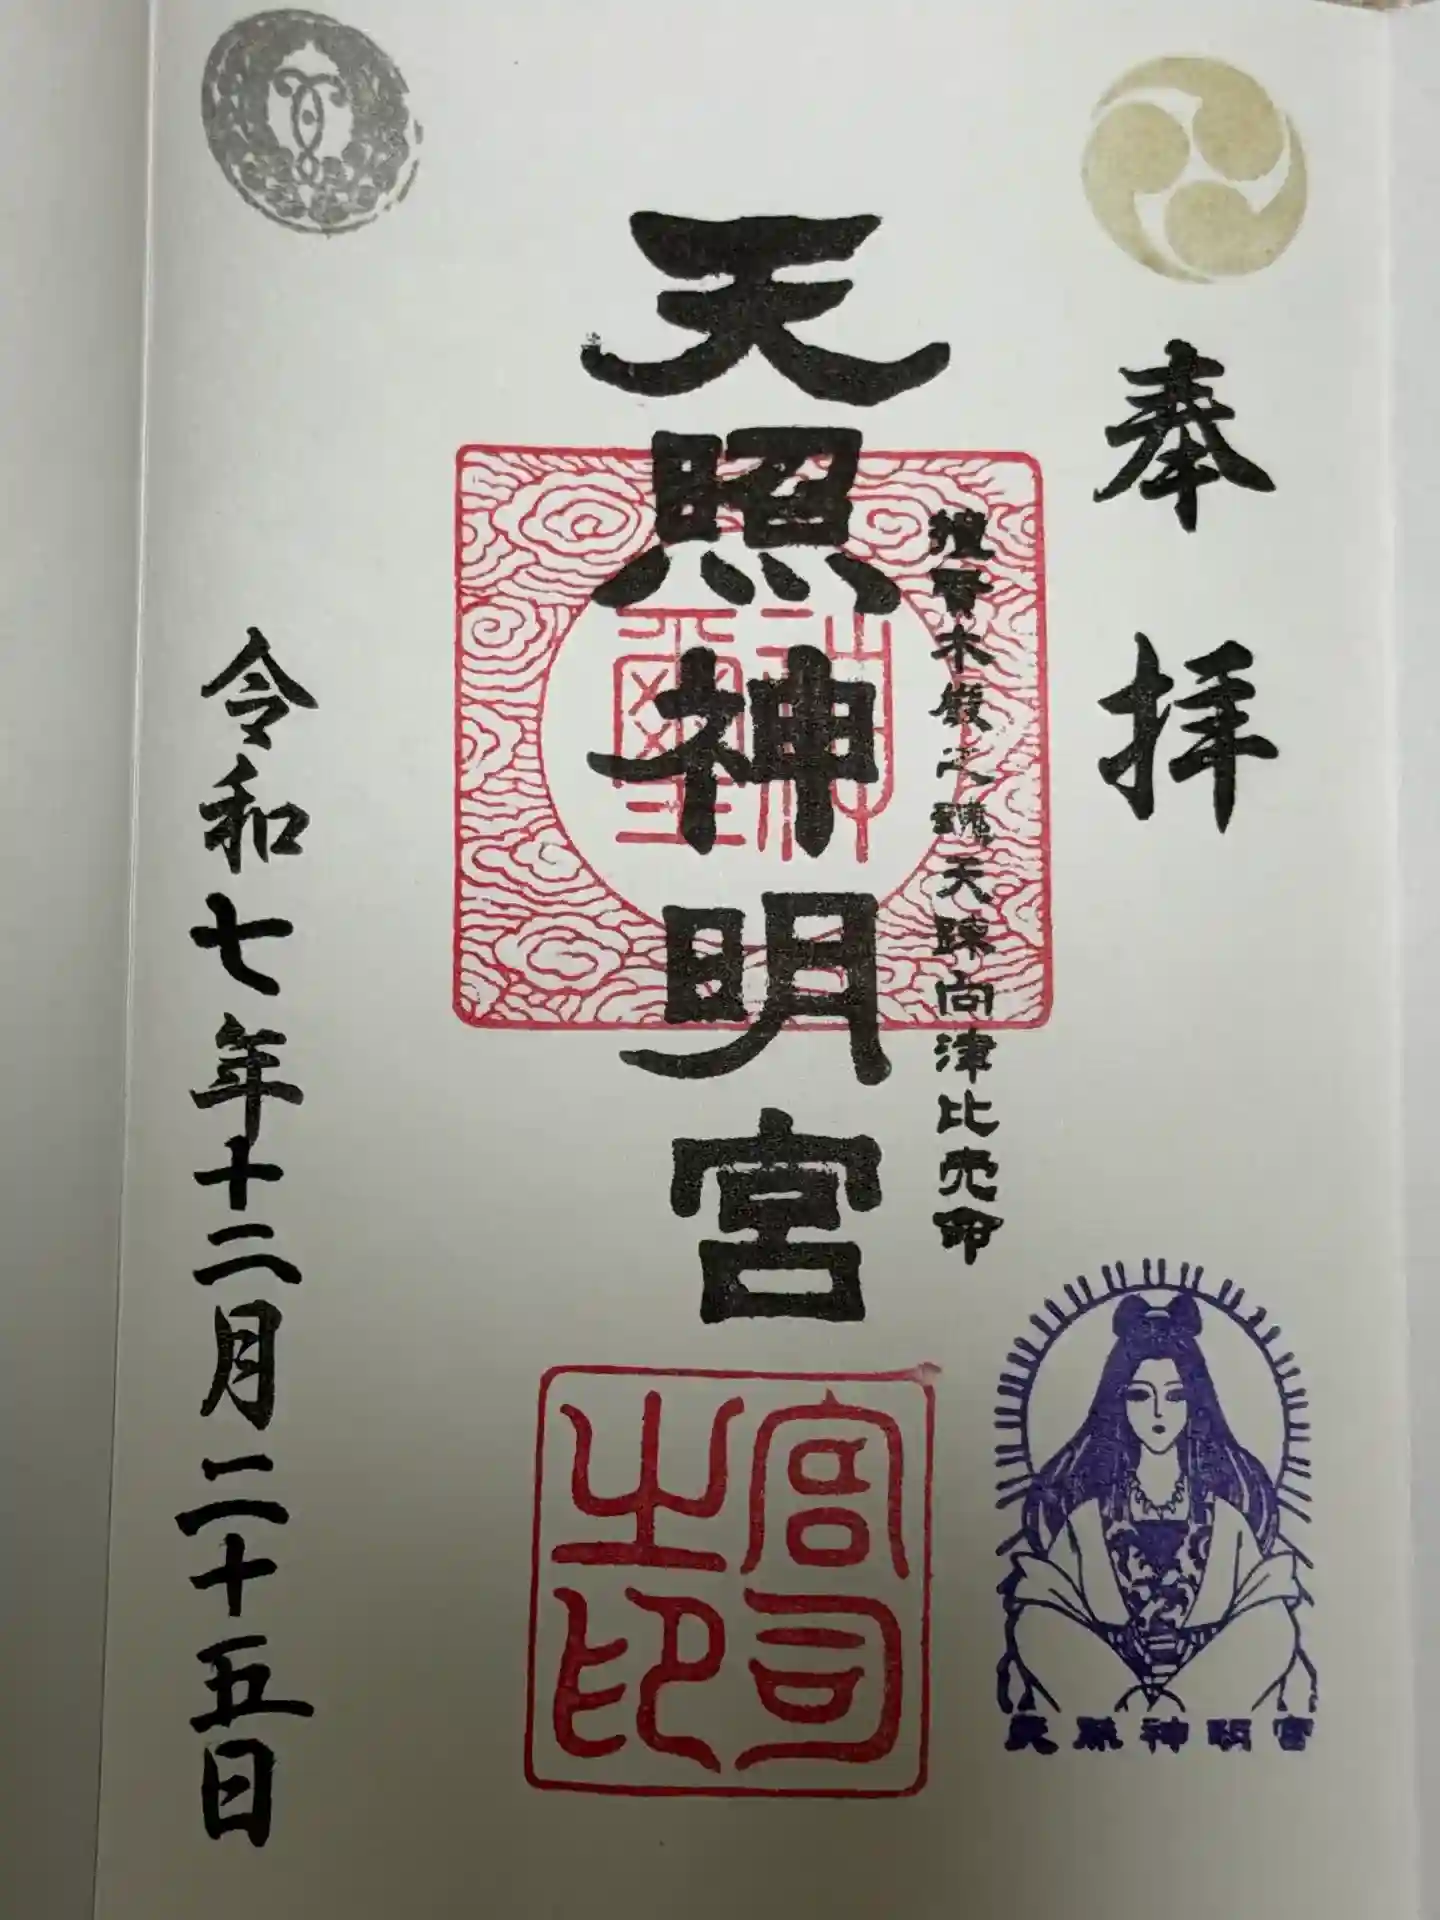 奉拝
撞賢木厳之魂天疎向津比売命
天照神明宮
神璽
宮司之印
天照神明宮
令和七年十二月二十五日